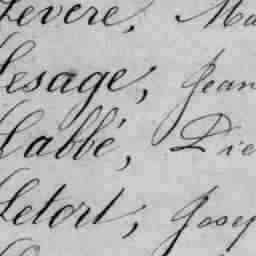 Levere, Ma
Lesage, Jean
Labbé, Pie
Letort, Josep